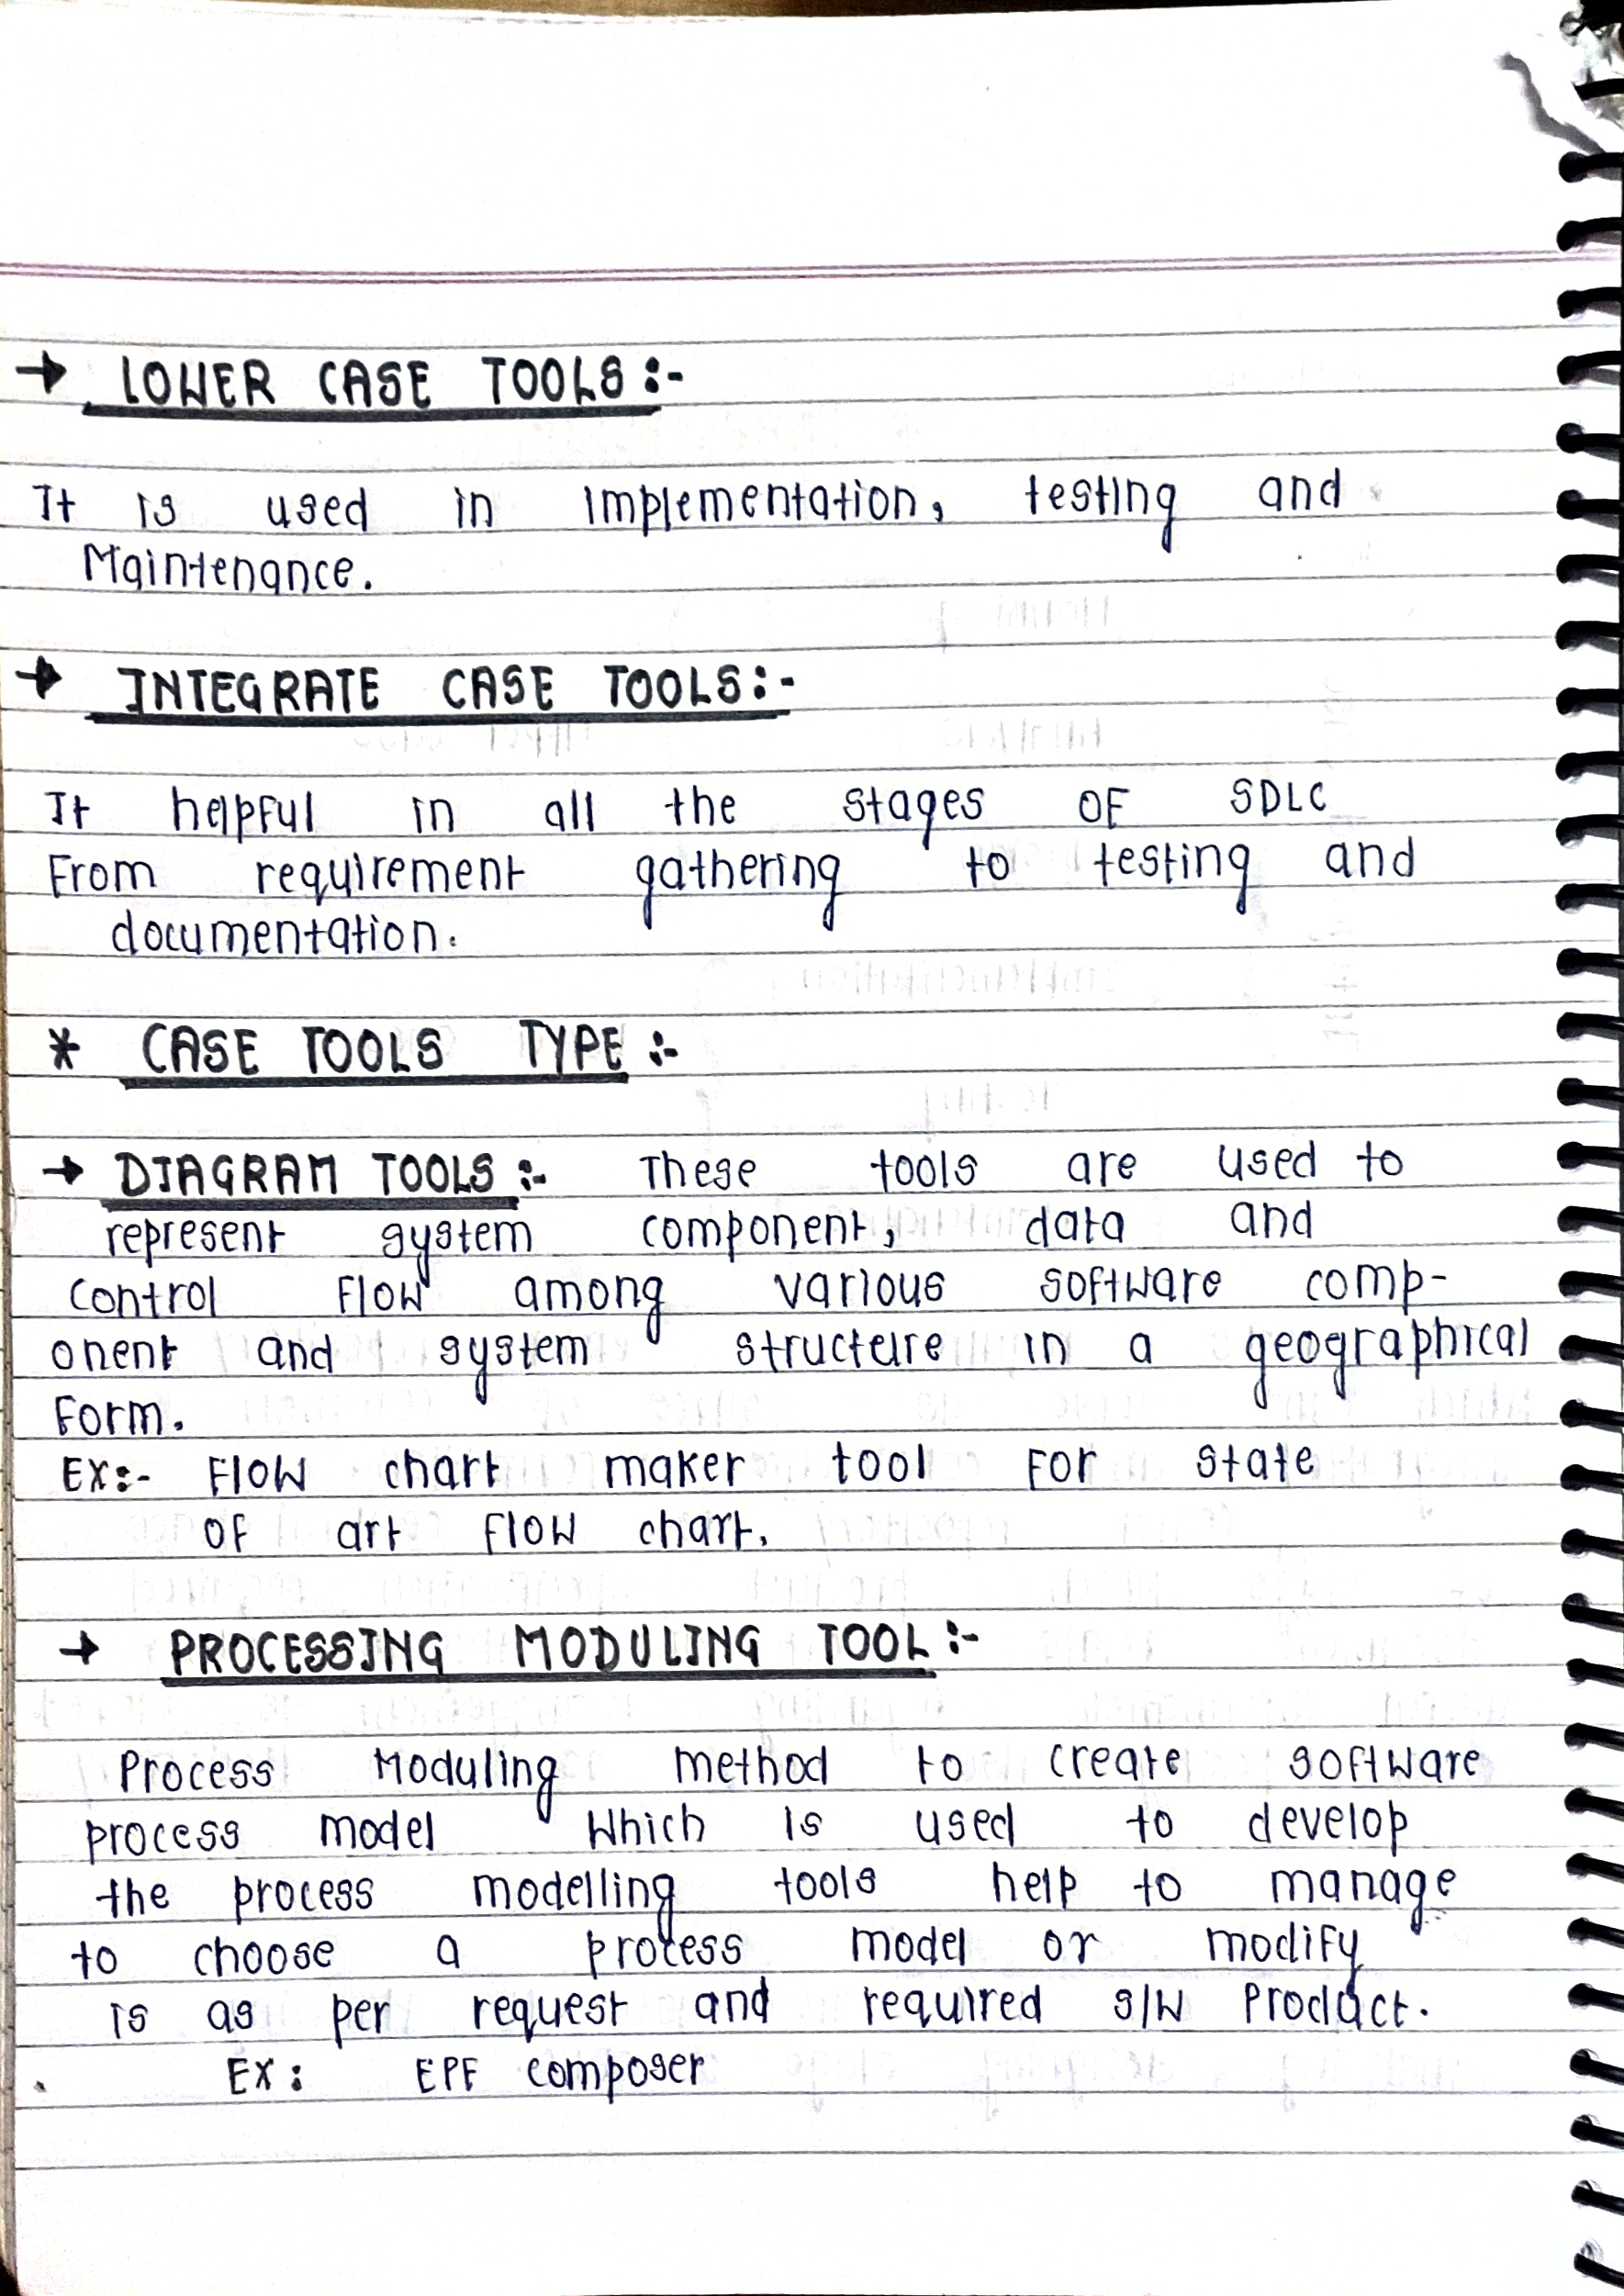 → LOWER CASE TOOLS :-
It is used in implementation, testing and
Maintenance.
→ INTEGRATE CASE TOOLS :-
It helpful in all the stages OF SDLC
From requirement gathering to testing and
documentation.
* CASE TOOLS TYPE :-
→ DIAGRAM TOOLS :- These tools are used to
represent system component, data and
control Flow among various software comp-
onent and system structure in a geographical
Form.
EX:- Flow chart maker tool For state
OF art Flow chart.
→ PROCESSING MODULING TOOL :-
Process Moduling method to create software
process model which is used to develop
the process modelling tools help to manage
to choose a process model or modify
is as per request and required S/W Product.
EX : EPF composer